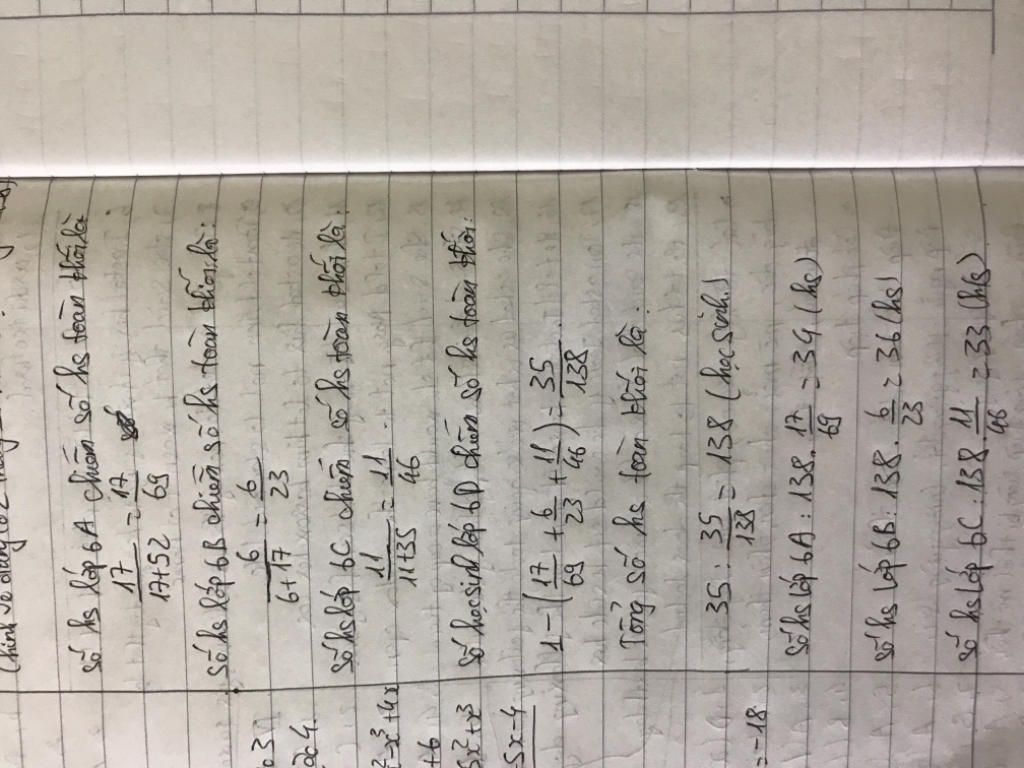 Số hs lớp 6A chiếm số hs toàn khối là
17/(17+52) = 17/69
Số hs lớp 6B chiếm số hs toàn khối là:
6/(6+17) = 6/23
Số hs lớp 6C chiếm số hs toàn khối là:
11/(11+35) = 11/46
Số học sinh lớp 6D chiếm số hs toàn khối:
1 - (17/69 + 6/23 + 11/46) = 35/138
Tổng số hs toàn khối là:
35 : 35/138 = 138 (học sinh)
Số hs lớp 6A: 138 . 17/69 = 34 (hs)
Số hs lớp 6B: 138 . 6/23 = 36 (hs)
Số hs lớp 6C: 138 . 11/46 = 33 (hs)
3
4
-x³+4x
+6
5x²+x³
5x-4
=-18